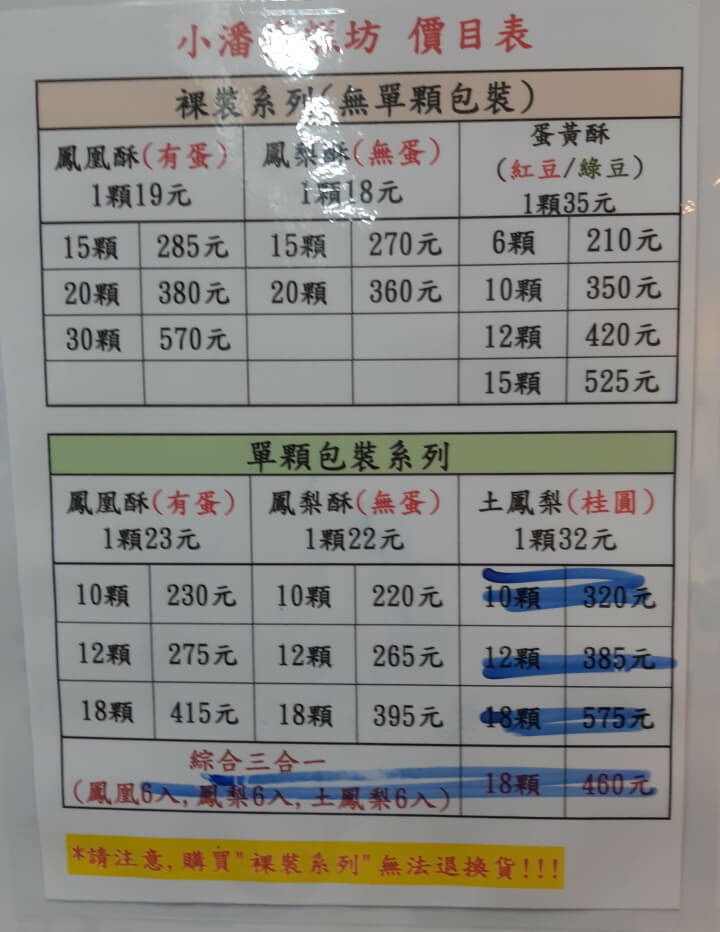 小潘 糕坊 價目表
裸裝系列(無單顆包裝)
鳳凰酥(有蛋) 鳳梨酥(無蛋) 蛋黃酥
(紅豆/綠豆)
1顆19元 1顆18元 1顆35元
15顆 285元 15顆 270元 6顆 210元
20顆 380元 20顆 360元 10顆 350元
30顆 570元 12顆 420元
15顆 525元
單顆包裝系列
鳳凰酥(有蛋) 鳳梨酥(無蛋) 土鳳梨(桂圓)
1顆23元 1顆22元 1顆32元
10顆 230元 10顆 220元 10顆 320元
12顆 275元 12顆 265元 12顆 385元
18顆 415元 18顆 395元 18顆 575元
綜合三合一
(鳳凰6入,鳳梨6入,土鳳梨6入) 18顆 460元
*請注意,購買"裸裝系列"無法退換貨!!!